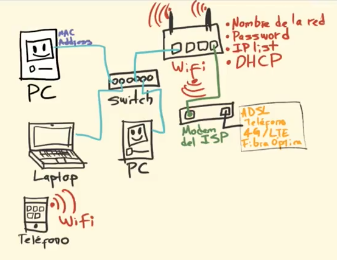 MAC
Address
PC
Switch
WiFi
• Nombre de la red
• Password
• IP list
• DHCP
Modem
del ISP
ADSL
Teléfono
4G/LTE
Fibra Optica
Laptop
PC
WiFi
Teléfono